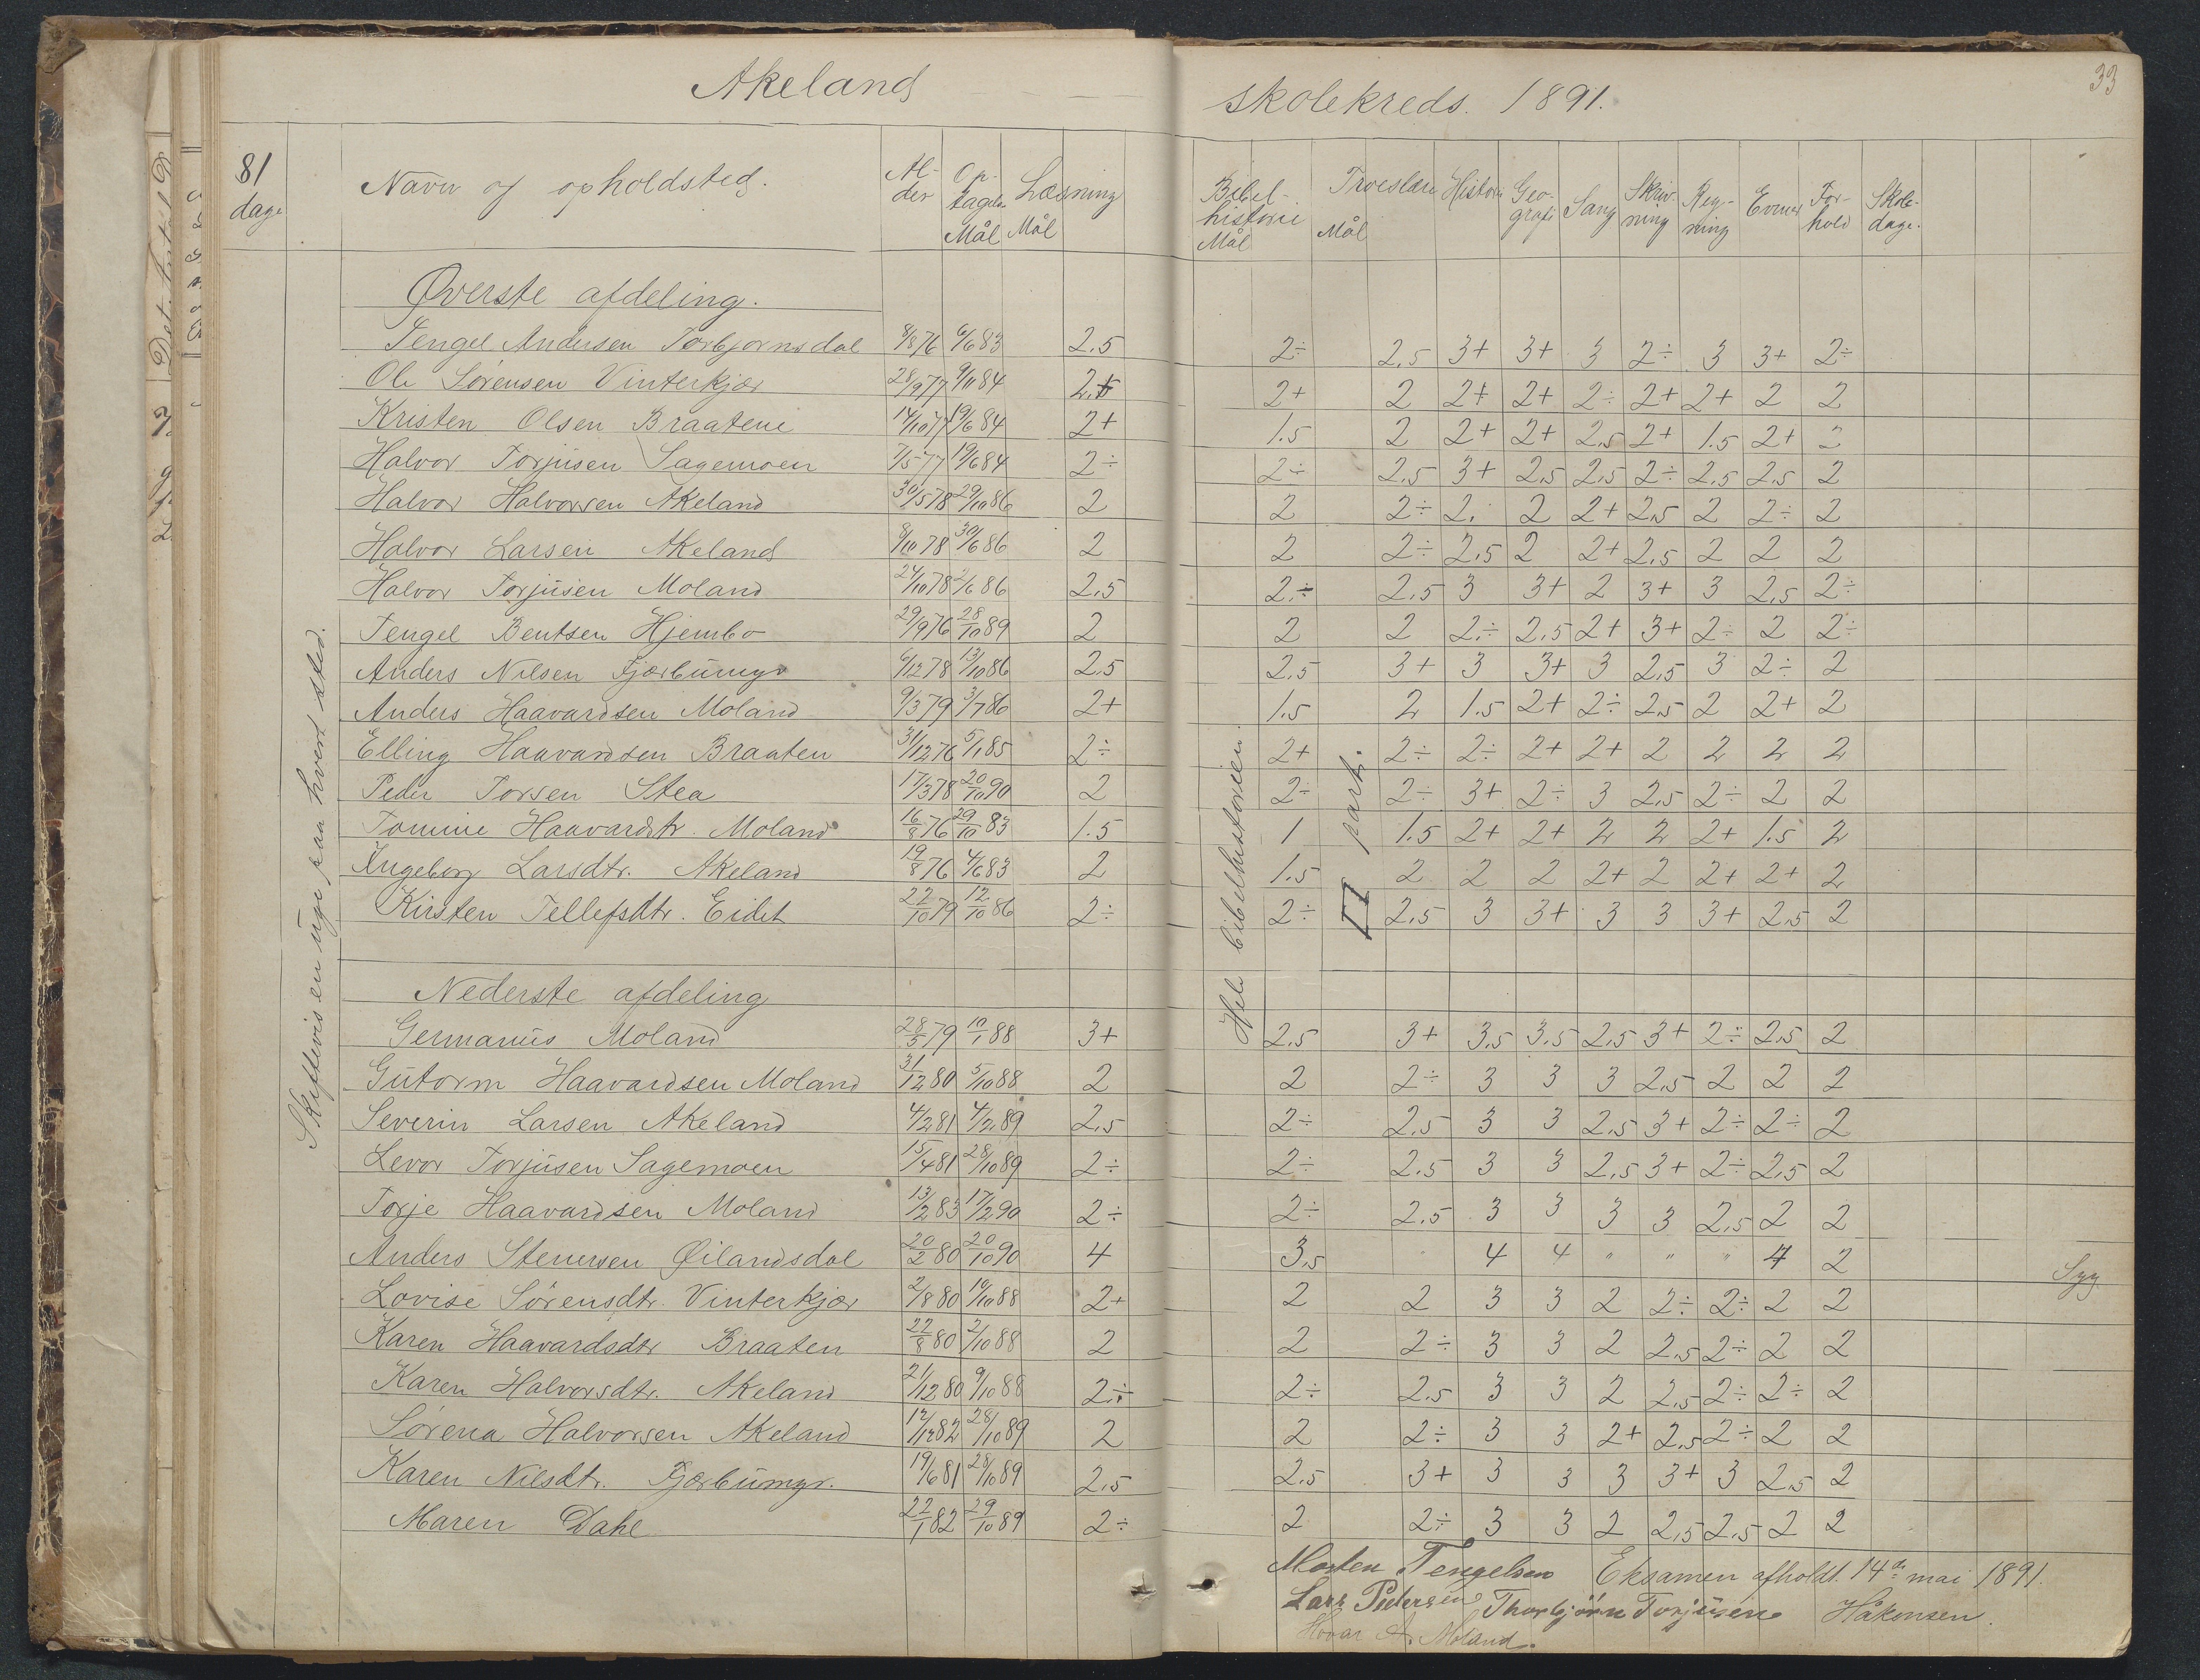 Akeland skolekreds. 1891.
33
81 dage
Navn og opholdsted.
Al-der
Op-tagelse Mål
Læsning Mål
Bibel-historie Mål
Troeslære Mål
Historie
Geo-grafi
Sang
Skriv-ning
Reg-ning
Evner
For-hold
Skole-dage.
Skiftevis en uge paa hvert sted.
Hele bibelhistorien.
II part.
Øverste afdeling.
Tengel Andersen Torbjørnsdal 8/8 76 6/6 83 2.5 2÷ 2.5 3+ 3+ 3 2÷ 3 3+ 2÷
Ole Sørensen Vinterkjær 28/9 77 9/11 84 2+ 2 2+ 2+ 2÷ 2+ 2+ 2 2
Kristen Olsen Braatene 14/10 77 19/6 84 2+ 1.5 2 2+ 2+ 2.5 2+ 1.5 2+ 2
Halvor Torjusen Sagemoen 7/5 77 19/6 84 2÷ 2÷ 2.5 3+ 2.5 2.5 2÷ 2.5 2.5 2
Halvor Halvorsen Akeland 30/5 78 29/10 86 2 2 2÷ 2. 2 2+ 2.5 2 2÷ 2
Halvor Larsen Akeland 8/10 78 30/6 86 2 2 2÷ 2.5 2 2+ 2.5 2 2 2
Halvor Torjusen Moland 24/10 78 2/6 86 2.5 2÷ 2.5 3 3+ 2 3+ 3 2.5 2÷
Tengel Bentsen Hjembo 29/9 76 28/10 89 2 2 2 2÷ 2.5 2+ 3+ 2÷ 2 2÷
Anders Nilsen Fjærbumyr 6/12 78 13/10 86 2.5 2.5 3+ 3 3+ 3 2.5 3 2÷ 2
Anders Haavardsen Moland 9/3 79 3/7 86 2+ 1.5 2 1.5 2+ 2÷ 2.5 2 2+ 2
Elling Haavardsen Braaten 31/12 76 5/1 85 2÷ 2+ 2÷ 2÷ 2+ 2+ 2 2 2 2
Peder Torsen Stea 17/3 78 20/10 90 2 2÷ 2÷ 3+ 2÷ 3 2.5 2÷ 2 2
Tomine Haavardstr. Moland 16/8 76 29/10 83 1.5 1 1.5 2+ 2+ 2 2 2+ 1.5 2
Ingeborg Larsdtr. Akeland 19/8 76 4/6 83 2 1.5 2 2 2 2+ 2 2+ 2+ 2
Kirsten Tellefsdtr. Eidet 22/10 79 12/10 86 2÷ 2÷ 2.5 3 3+ 3 3 3+ 2.5 2
Nederste afdeling
Germanius Moland 28/5 79 10/1 88 3+ 2.5 3+ 3.5 3.5 2.5 3+ 2÷ 2.5 2
Gutorm Haavardsen Moland 31/12 80 5/10 88 2 2 2÷ 3 3 3 2.5 2 2 2
Severin Larsen Akeland 4/2 81 4/2 89 2.5 2÷ 2.5 3 3 2.5 3+ 2÷ 2÷ 2
Levor Torjusen Sagemoen 15/4 81 28/10 89 2÷ 2÷ 2.5 3 3 2.5 3+ 2÷ 2.5 2
Torje Haavardsen Moland 13/2 83 17/2 90 2÷ 2÷ 2.5 3 3 3 3 2.5 2 2
Anders Stenersen Øilandsdal 20/2 80 20/10 90 4 3.5 4 4 " " " 4 2 Syg
Lovise Sørensdtr. Vinterkjær 2/8 80 10/10 88 2+ 2 2 3 3 2 2÷ 2÷ 2 2
Karen Haavardsdtr Braaten 22/8 80 2/10 88 2 2 2÷ 3 3 2 2.5 2÷ 2 2
Karen Halvorsdtr. Akeland 21/12 80 9/10 88 2÷ 2÷ 2.5 3 3 2 2.5 2÷ 2÷ 2
Sørena Halvorsen Akeland 12/12 82 28/10 89 2 2 2÷ 3 3 2+ 2.5 2÷ 2 2
Karen Nilsdtr. Fjærbumyr. 19/6 81 28/10 89 2.5 2.5 3+ 3 3 3 3+ 3 2.5 2
Maren Dahl 22/1 82 29/10 89 2÷ 2 2÷ 3 3 2 2.5 2.5 2 2
Morten Tengelsen Eksamen afholdt 14de mai 1891.
Lars Pedersen Thorbjørn Torjusen Håkonsen.
Hovar A. Moland.